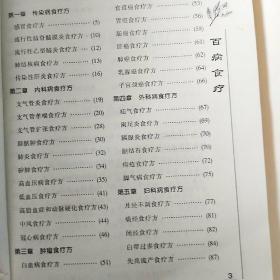 第一章 传染病食疗方
感冒食疗方 (5)
流行性结脊髓膜炎食疗方 (10)
流行性乙型脑炎食疗方 (12)
肺结核病食疗方 (13)
传染性肝炎食疗方 (16)
第二章 内科病食疗方
支气管炎食疗方 (19)
支气管哮喘食疗方 (20)
支气管扩张食疗方 (24)
肺脓肿食疗方 (30)
肺炎食疗方 (32)
矽肺食疗方 (34)
高血压病食疗方 (35)
低血压食疗方 (41)
高脂血症和动脉硬化食疗方 (43)
中风食疗方 (44)
冠心病食疗方 (47)
第三章 肿瘤食疗方
白血病食疗方 (51)
食道癌食疗方
胃癌食疗方
肠癌食疗方
肝癌食疗方
肺癌食疗方
乳腺癌食疗方
子宫颈癌食疗方
第四章 外科病食疗方
疝气食疗方 (67)
阑尾炎食疗方 (69)
胰腺炎食疗方
胆结石食疗方 (70)
痔疮食疗方 (72)
脚气病食疗方 (75)
第五章 妇科病食疗方
月经不调食疗方 (77)
痛经食疗方 (81)
闭经食疗方 (82)
白带过多食疗方 (84)
先兆流产食疗方 (87)
百病食疗
3